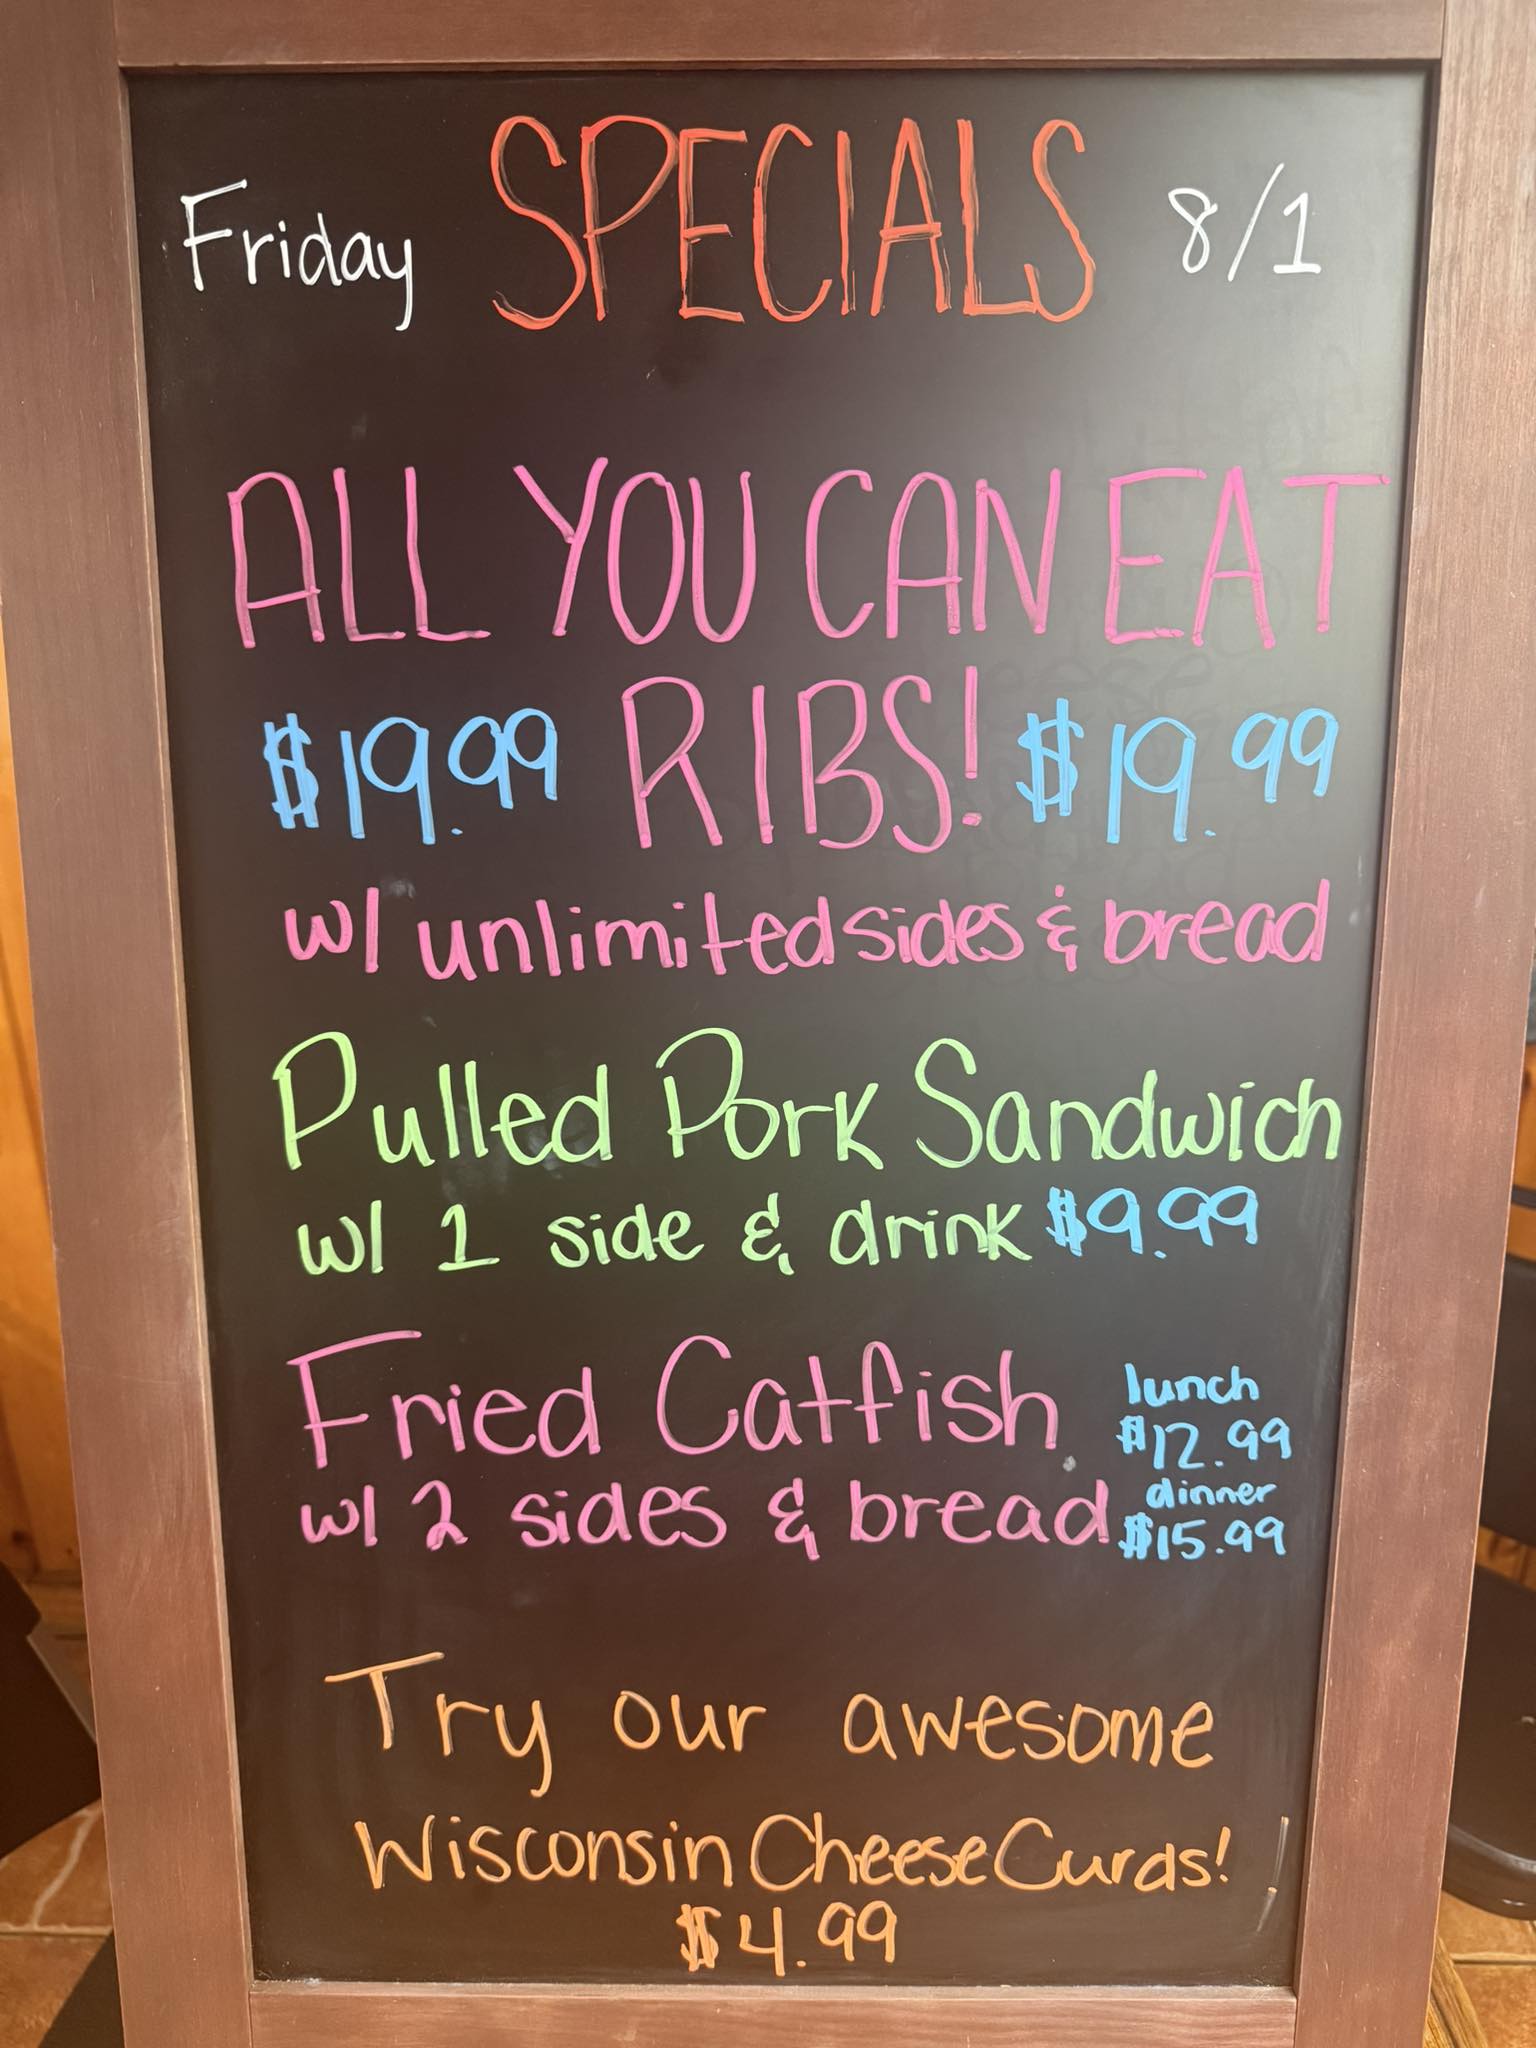 Friday SPECIALS 8/1
ALL YOU CAN EAT
$19.99 RIBS! $19.99
w/ unlimited sides & bread
Pulled Pork Sandwich
w/ 1 side & drink $9.99
Fried Catfish lunch $12.99
w/ 2 sides & bread dinner $15.99
Try our awesome
Wisconsin Cheese Curds!
$4.99